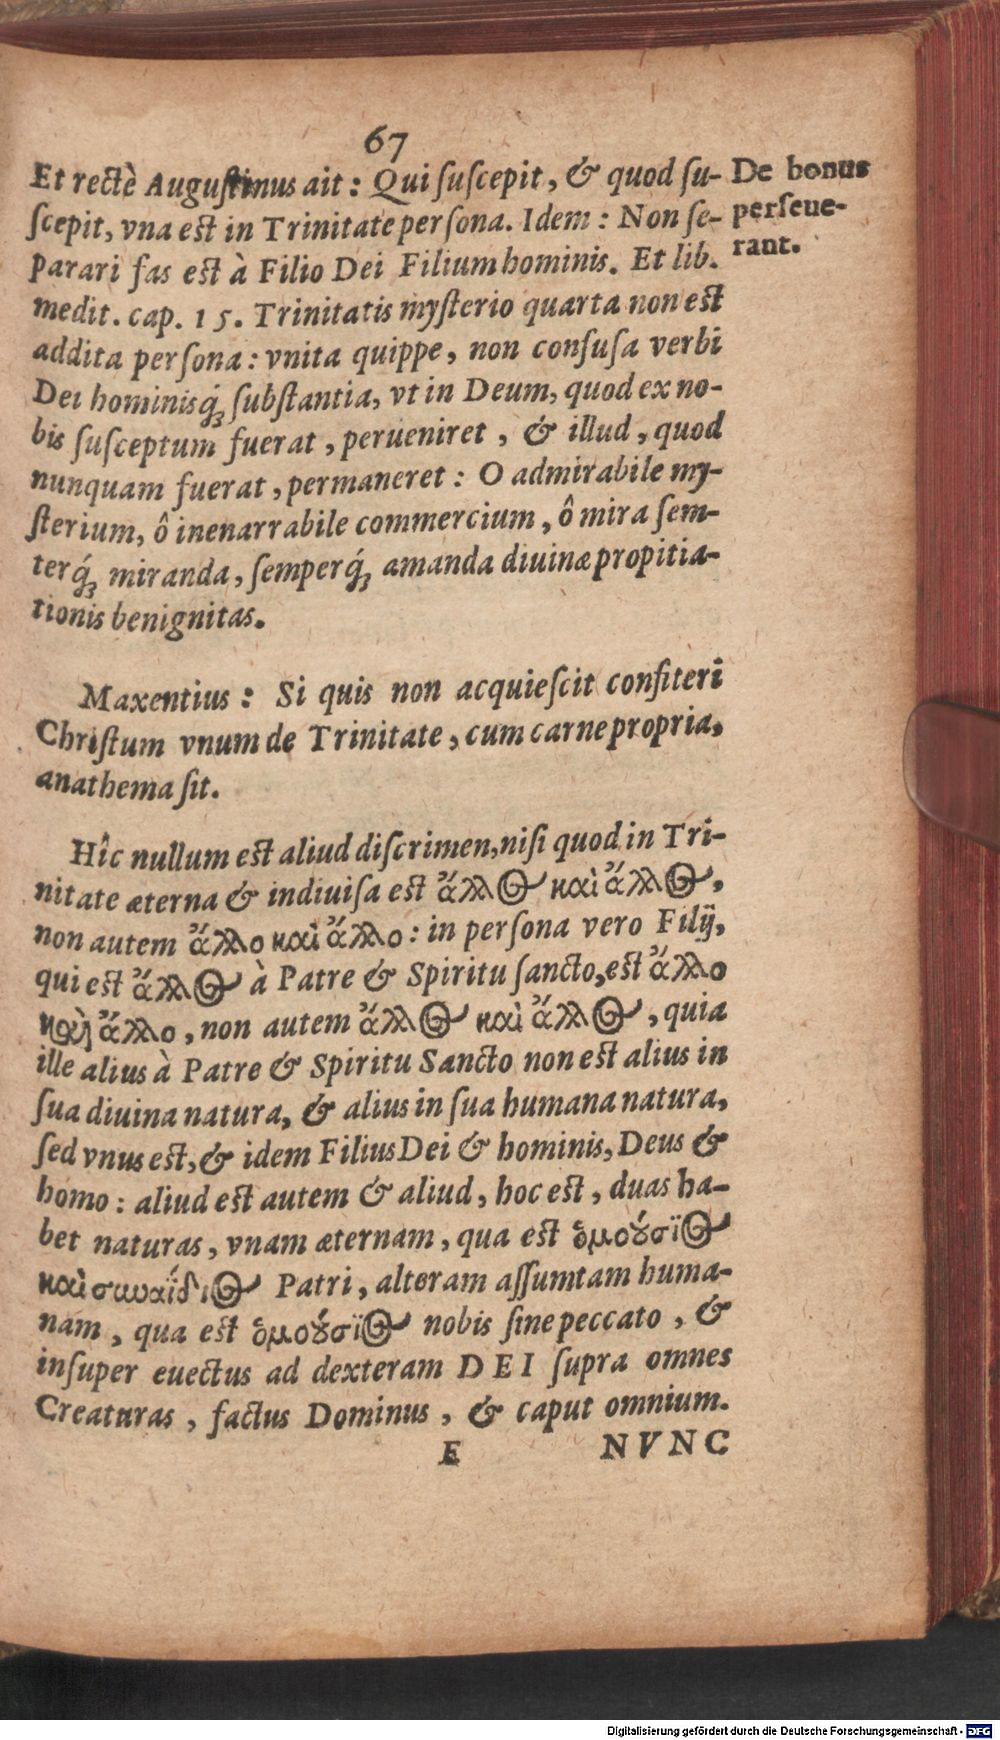 67
Et rectè Augustinus ait: Qui suscepit, & quod su-
scepit, vna est in Trinitate persona. Idem: Non se-
parari fas est à Filio Dei Filium hominis. Et lib.
medit. cap. 15. Trinitatis mysterio quarta non est
addita persona: vnita quippe, non confusa verbi
Dei hominisq́; substantia, vt in Deum, quod ex no-
bis susceptum fuerat, perueniret, & illud, quod
nunquam fuerat, permaneret: O admirabile my-
sterium, ô inenarrabile commercium, ô mira sem-
terq́; miranda, semperq́; amanda diuinæ propitia-
tionis benignitas.
De bonus
perseue-
rant.
Maxentius: Si quis non acquiescit confiteri
Christum vnum de Trinitate, cum carne propria,
anathema sit.
Hîc nullum est aliud discrimen, nisi quod in Tri-
nitate æterna & indiuisa est ἄλλος καὶ ἄλλος,
non autem ἄλλο καὶ ἄλλο: in persona vero Filij,
qui est ἄλλος à Patre & Spiritu sancto, est ἄλλο
καὶ ἄλλο, non autem ἄλλος καὶ ἄλλος, quia
ille alius à Patre & Spiritu Sancto non est alius in
sua diuina natura, & alius in sua humana natura,
sed vnus est, & idem Filius Dei & hominis, Deus &
homo: aliud est autem & aliud, hoc est, duas ha-
bet naturas, vnam æternam, qua est ὁμούσιος
καὶ συναΐδιος Patri, alteram assumtam huma-
nam, qua est ὁμούσιος nobis sine peccato, &
insuper euectus ad dexteram DEI supra omnes
Creaturas, factus Dominus, & caput omnium.
E NVNC
Digitalisierung gefördert durch die Deutsche Forschungsgemeinschaft - DFG